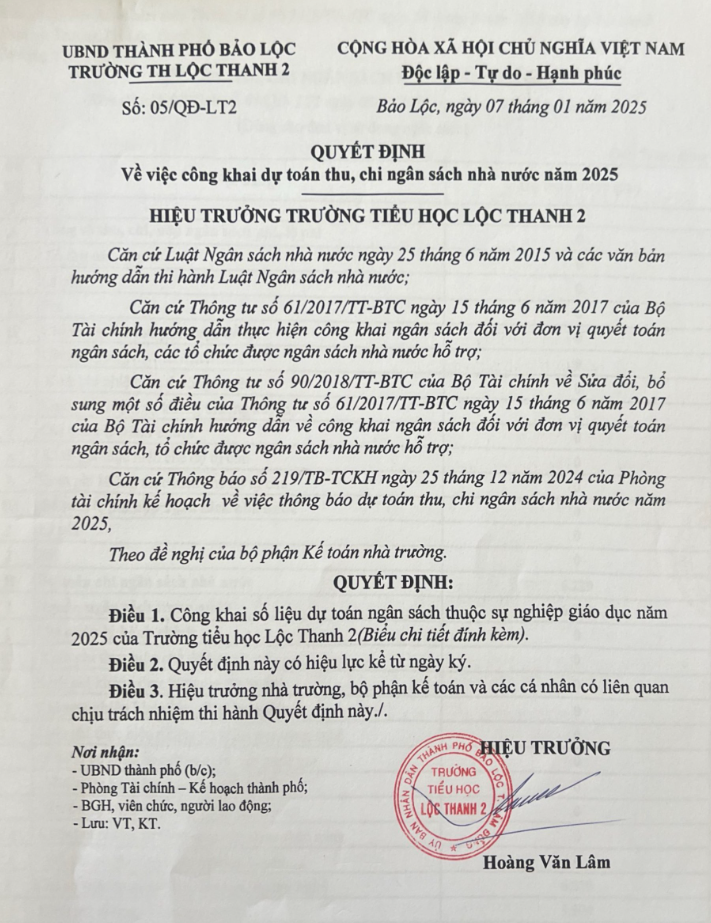 UBND THÀNH PHỐ BẢO LỘC
TRƯỜNG TH LỘC THANH 2
CỘNG HÒA XÃ HỘI CHỦ NGHĨA VIỆT NAM
Độc lập - Tự do - Hạnh phúc
Số: 05/QĐ-LT2
Bảo Lộc, ngày 07 tháng 01 năm 2025
QUYẾT ĐỊNH
Về việc công khai dự toán thu, chi ngân sách nhà nước năm 2025
HIỆU TRƯỞNG TRƯỜNG TIỂU HỌC LỘC THANH 2
Căn cứ Luật Ngân sách nhà nước ngày 25 tháng 6 năm 2015 và các văn bản
hướng dẫn thi hành Luật Ngân sách nhà nước;
Căn cứ Thông tư số 61/2017/TT-BTC ngày 15 tháng 6 năm 2017 của Bộ
Tài chính hướng dẫn thực hiện công khai ngân sách đối với đơn vị quyết toán
ngân sách, các tổ chức được ngân sách nhà nước hỗ trợ;
Căn cứ Thông tư số 90/2018/TT-BTC của Bộ Tài chính về Sửa đổi, bổ
sung một số điều của Thông tư số 61/2017/TT-BTC ngày 15 tháng 6 năm 2017
của Bộ Tài chính hướng dẫn về công khai ngân sách đối với đơn vị quyết toán
ngân sách, tổ chức được ngân sách nhà nước hỗ trợ;
Căn cứ Thông báo số 219/TB-TCKH ngày 25 tháng 12 năm 2024 của Phòng
tài chính kế hoạch về việc thông báo dự toán thu, chi ngân sách nhà nước năm
2025,
Theo đề nghị của bộ phận Kế toán nhà trường.
QUYẾT ĐỊNH:
Điều 1. Công khai số liệu dự toán ngân sách thuộc sự nghiệp giáo dục năm
2025 của Trường tiểu học Lộc Thanh 2(Biểu chi tiết đính kèm).
Điều 2. Quyết định này có hiệu lực kể từ ngày ký.
Điều 3. Hiệu trưởng nhà trường, bộ phận kế toán và các cá nhân có liên quan
chịu trách nhiệm thi hành Quyết định này./.
Nơi nhận:
- UBND thành phố (b/c);
- Phòng Tài chính – Kế hoạch thành phố;
- BGH, viên chức, người lao động;
- Lưu: VT, KT.
HIỆU TRƯỞNG
ỦY BAN NHÂN DÂN THÀNH PHỐ BẢO LỘC T. LÂM ĐỒNG
TRƯỜNG
TIỂU HỌC
LỘC THANH 2
Hoàng Văn Lâm